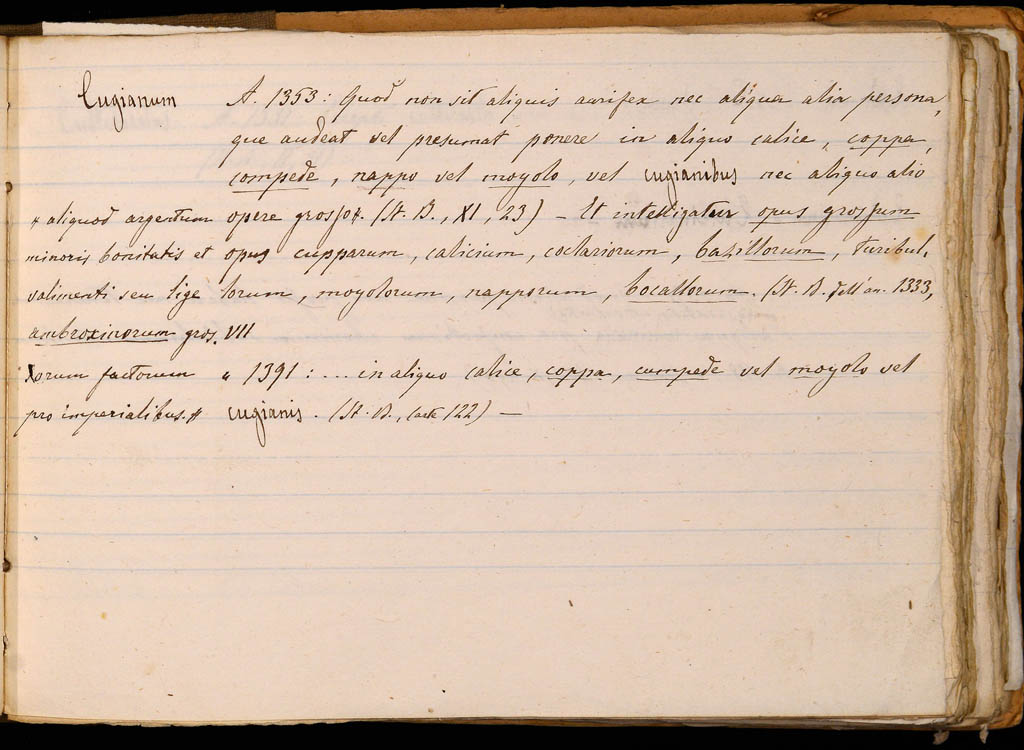 Cugianum A. 1353: Quod non sit aliquis aurifex nec aliqua alia persona,
que audeat vel presumat ponere in aliquo calice, coppa,
compede, nappo vel moyolo, vel cugianibus nec aliquo alio
# aliquod argentum opere grosso #. (St. B., XI, 23) - Et intelligatur opus grossum
minoris bonitatis et opus cupparum, calicium, coclariorum, bazillorum, turibul.
valimenti seu lige lorum, moyolorum, napporum, bocallorum. (St. B. dell'an. 1333,
ambroxinorum gros. VII
Xorum factorum " 1391: ... in aliquo calice, coppa, cumpede vel moyolo vel
pro imperialibus. # cugianis. (St. B., carte 122) —